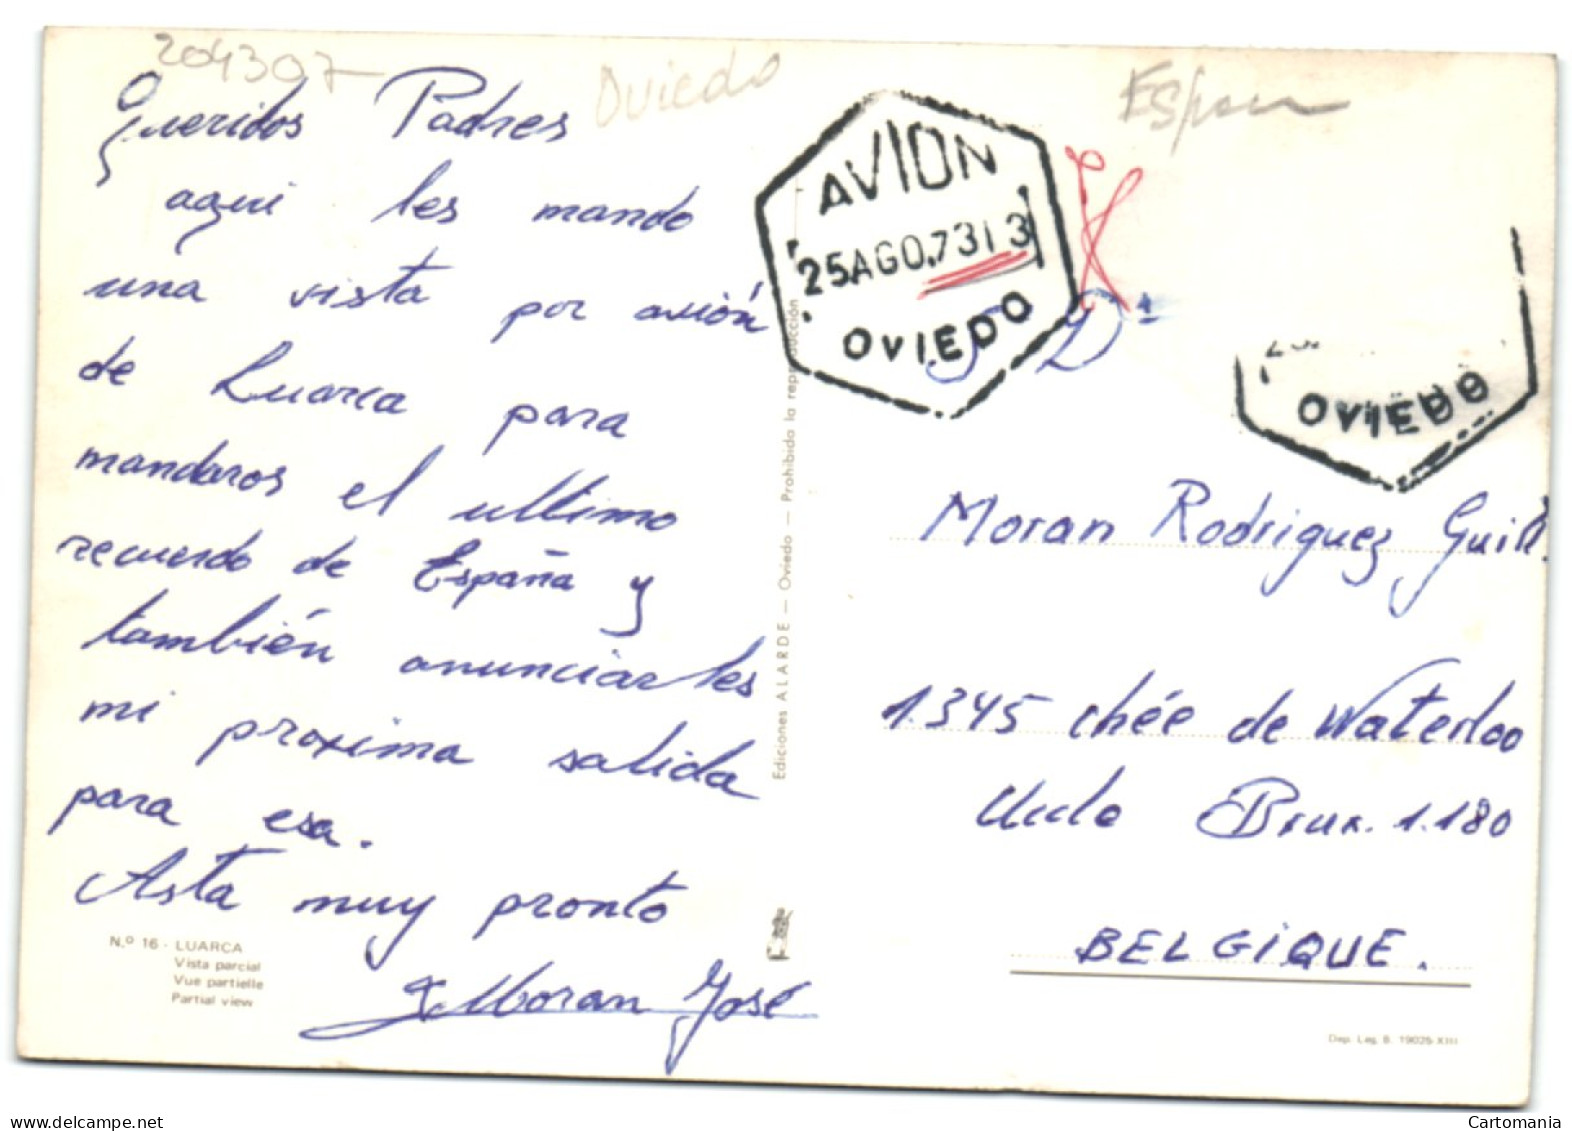 204307
Oviedo
Queridos Padres
aqui les mando
una vista por avión
de Luarca para
mandaros el ultimo
recuerdo de España y
también anunciarles
mi proxima salida
para esa.
Asta muy pronto
Moran José
N.º 16 - LUARCA
Vista parcial
Vue partielle
Partial view
Ediciones ALARDE — Oviedo — Prohibida la reproducción
AVION
25AGO.73 13
OVIEDO
OVIEDO
Moran Rodriguez Guill.
1345 chée de Waterloo
Uccle Brux. 1.180
BELGIQUE.
Dep. Leg. B. 19025-XIII
delcampe.net
Cartomania